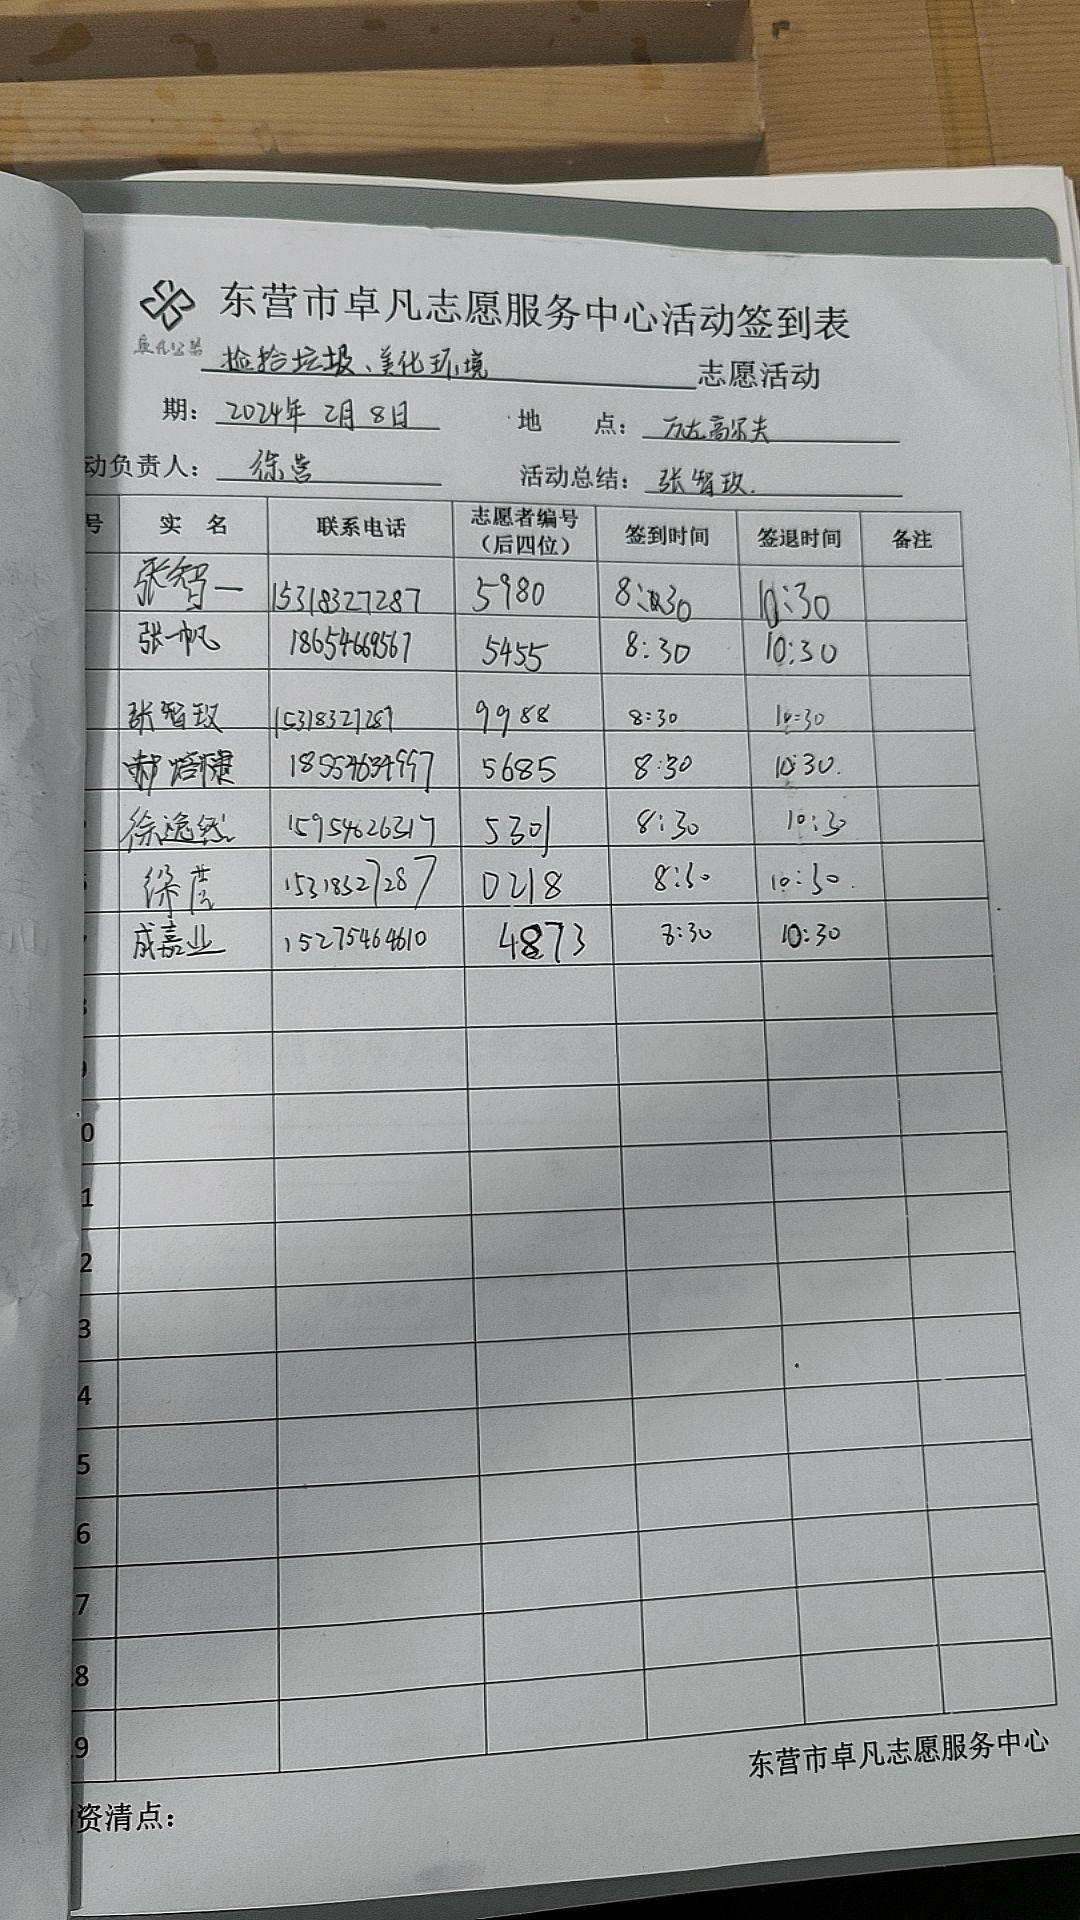 东营市卓凡志愿服务中心活动签到表
卓凡公益 捡拾垃圾、美化环境 志愿活动
期: 2024年2月8日 地 点: 万达高尔夫
动负责人: 徐营 活动总结: 张智玫.
号 实 名 联系电话 志愿者编号(后四位) 签到时间 签退时间 备注
张智一 15318327287 5980 8:30 10:30
张一帆 18654669567 5455 8:30 10:30
张智玫 15318327287 9988 8:30 10:30
郝焙臻 18554634997 5685 8:30 10:30.
徐逸然 15954626317 5301 8:30 10:30
徐营 15318327287 0218 8:30 10:30.
7 成嘉业 15275464610 4873 8:30 10:30
8
9
0
1
2
3
4
5
6
7
8
9
东营市卓凡志愿服务中心
资清点: